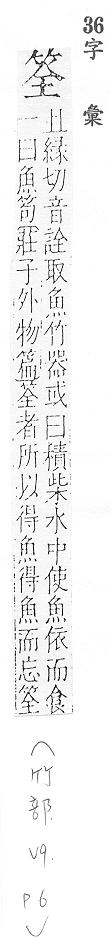 36字彙
筌
且緣切音詮取魚竹器或曰積柴水中使魚依而食
一曰魚笱莊子外物篇筌者所以得魚得魚而忘筌
(竹部. V9. P6)